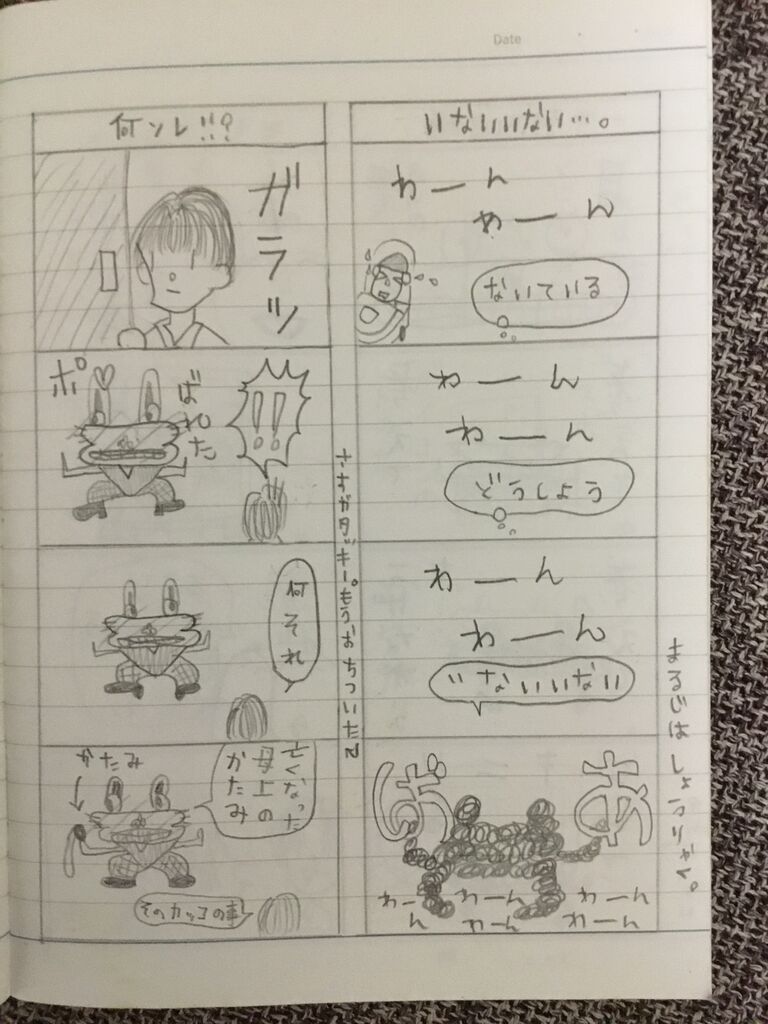 Date
いないいない…。
わーん
わーん
ないている
わーん
わーん
どうしよう
わーん
わーん
いないいない
ばあ
わーん
わーん
わーん
わーん
わーん
まるじはしょうりゃく。
何ソレ!!?
ガラッ
!!
ばれた
ポ♡
何それ
亡くなった
母上の
かたみ
かたみ
そのカッコの事
さすがタッキー。もうおちついたネ